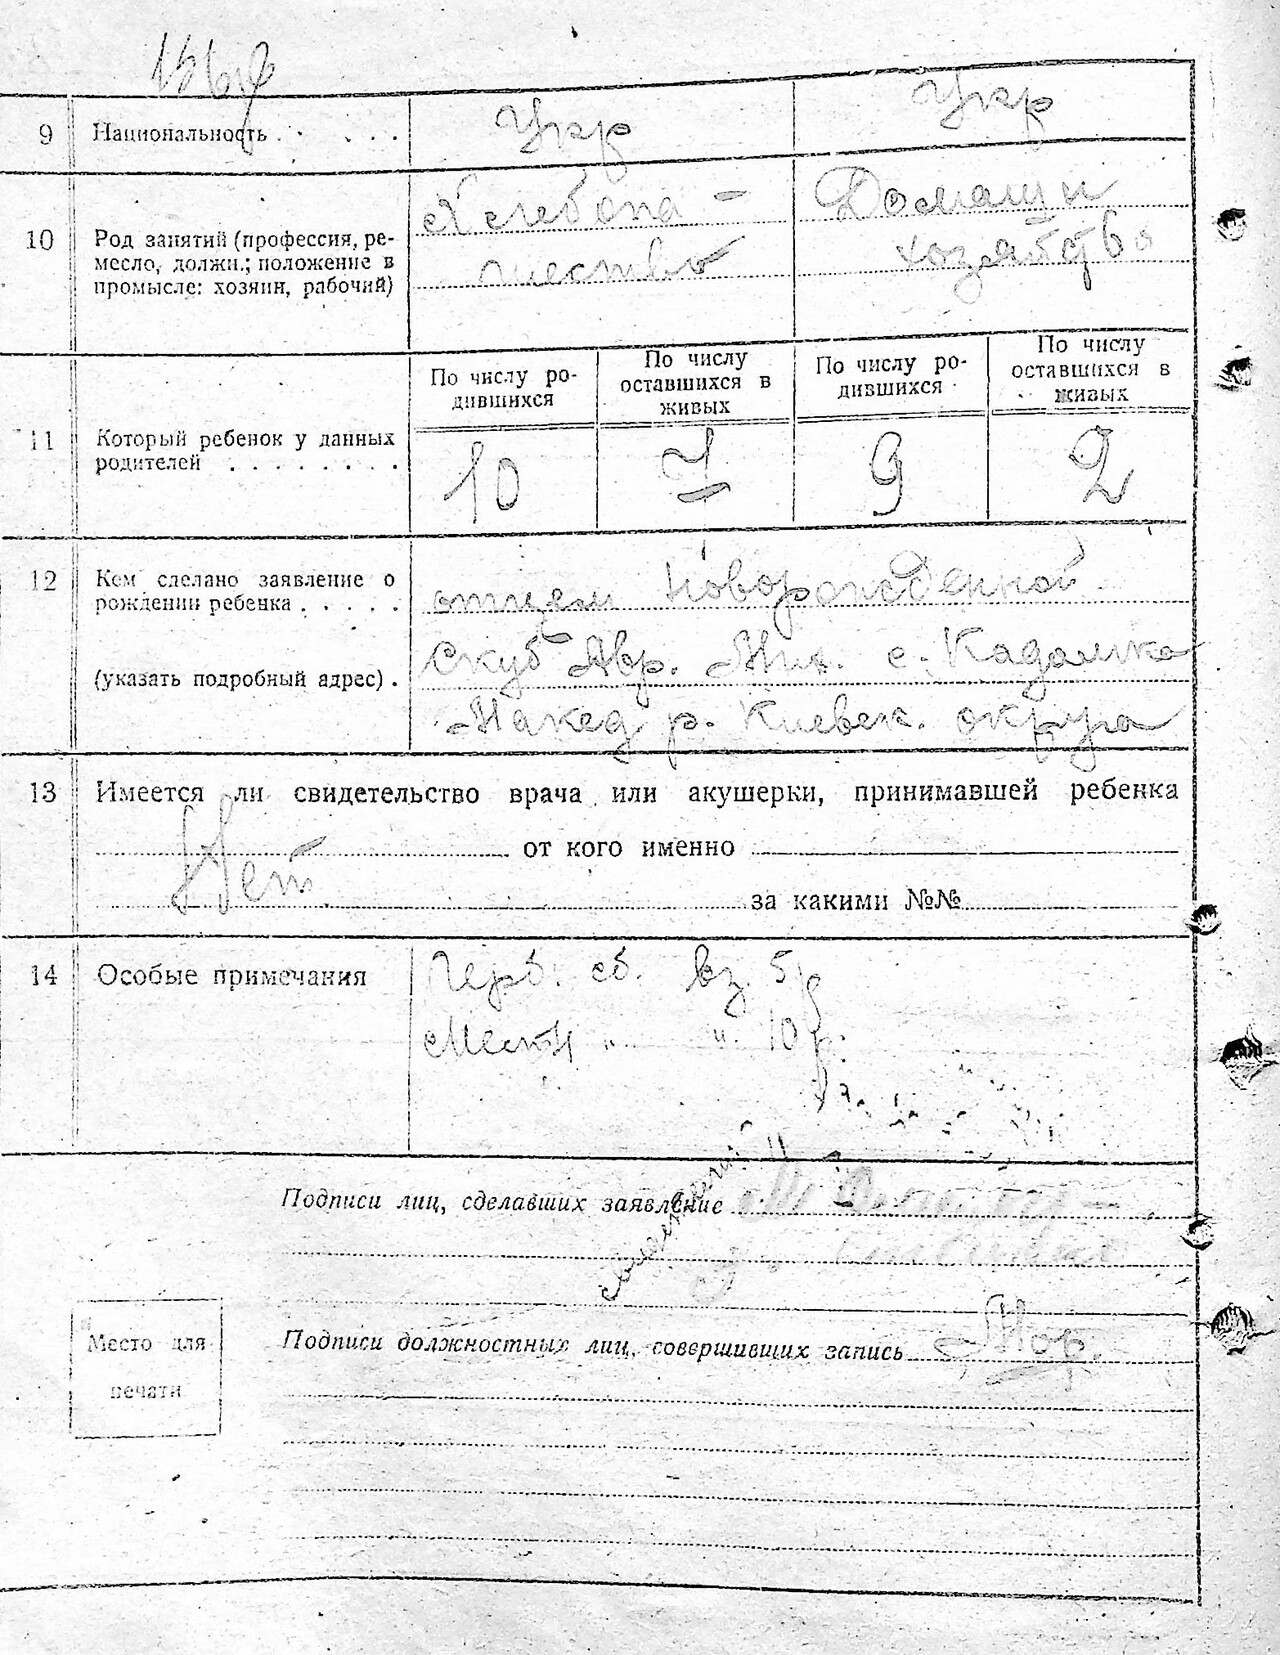 9 Национальность . . . . . Укр Укр
10 Род занятий (профессия, ре-
месло, должн.; положение в
промысле: хозяин, рабочий)
Хлебопа-
шество
Домашн
хозяйство
11 Который ребенок у данных
родителей . . . . . . . .
По числу ро-
дившихся
По числу
оставшихся в
живых
По числу ро-
дившихся
По числу
оставшихся в
живых
10 7 9 2
12 Кем сделано заявление о
рождении ребенка . . . . .
(указать подробный адрес) .
отцем новорожденной
Скуб Авр. с. Кадомка
р. Киевск. округа
13 Имеется ли свидетельство врача или акушерки, принимавшей ребенка
Нет от кого именно
за какими №№
14 Особые примечания
Герб. сб. вз. 5 р
Местн " " 10 р.
Подписи лиц, сделавших заявление
Место для
печати
Подписи должностных лиц, совершивших запись